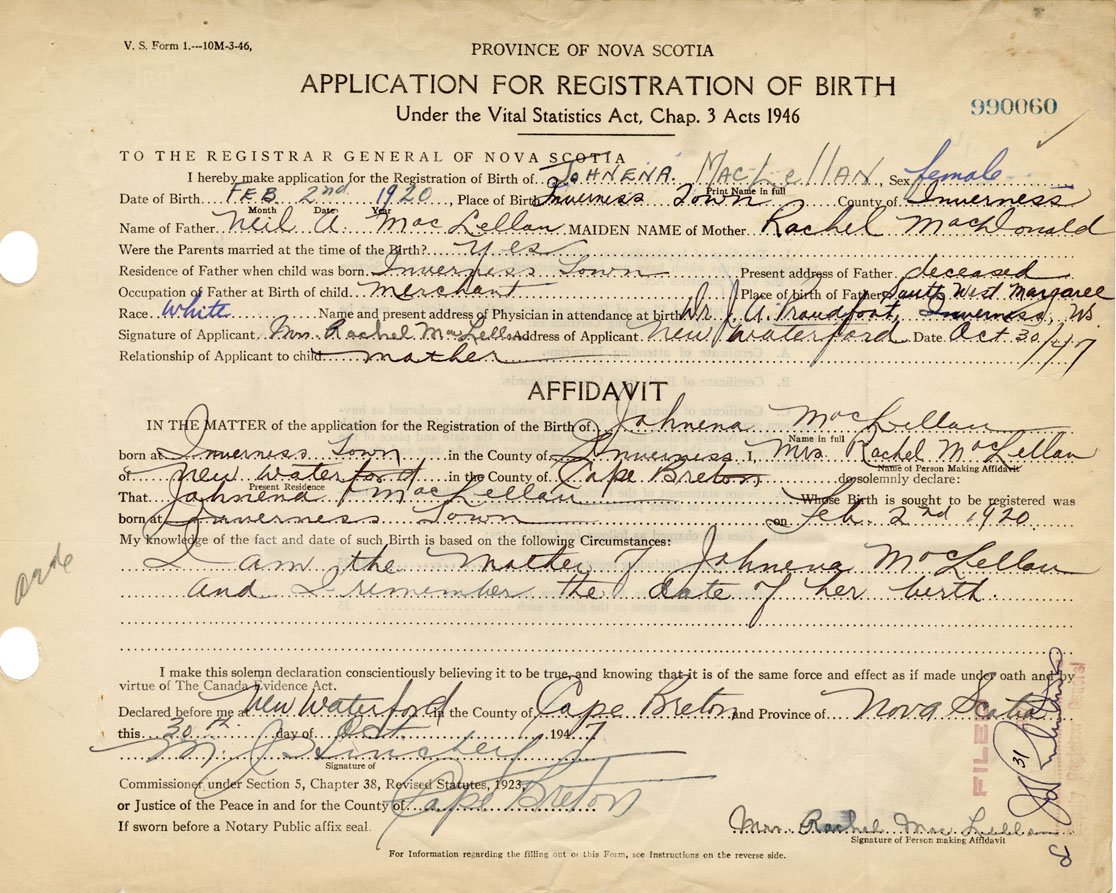 V. S. Form 1.---10M-3-46,
PROVINCE OF NOVA SCOTIA
APPLICATION FOR REGISTRATION OF BIRTH
990060
Under the Vital Statistics Act, Chap. 3 Acts 1946
TO THE REGISTRAR GENERAL OF NOVA SCOTIA
I hereby make application for the Registration of Birth of JOHNENA MACLELLAN, Sex female
Print Name in full
Date of Birth FEB 2nd 1920, Place of Birth Inverness Town County of Inverness
Month Date Year
Name of Father Neil A. MacLellan MAIDEN NAME of Mother Rachel MacDonald
Were the Parents married at the time of the Birth? yes
Residence of Father when child was born Inverness Town Present address of Father deceased
Occupation of Father at Birth of child merchant Place of birth of Father South West Margaree
Race White Name and present address of Physician in attendance at birth Dr. J. A. Proudfoot, Inverness, NS.
Signature of Applicant Mrs. Rachel MacLellan Address of Applicant New Waterford Date Oct 30/47
Relationship of Applicant to child mother
AFFIDAVIT
IN THE MATTER of the application for the Registration of the Birth of Johnena MacLellan
Name in full
born at Inverness Town in the County of Inverness I, Mrs Rachel McLellan
Name of Person Making Affidavit
of New Waterford in the County of Cape Breton do solemnly declare:
Present Residence
That Johnena MacLellan Whose Birth is sought to be registered was
born at Inverness Town on Feb. 2nd 1920
My knowledge of the fact and date of such Birth is based on the following Circumstances:
I am the Mother of Johnena McLellan
and I remember the date of her birth.
I make this solemn declaration conscientiously believing it to be true, and knowing that it is of the same force and effect as if made under oath and by
virtue of The Canada Evidence Act.
Declared before me at New Waterford in the County of Cape Breton and Province of Nova Scotia
this 30th day of Oct 1947
M.
Signature of
Commissioner under Section 5, Chapter 38, Revised Statutes, 1923,
or Justice of the Peace in and for the County of Cape Breton
If sworn before a Notary Public affix seal.
Mrs. Rachel MacLellan
Signature of Person making Affidavit
For Information regarding the filling out of this Form, see Instructions on the reverse side.
FILED
31